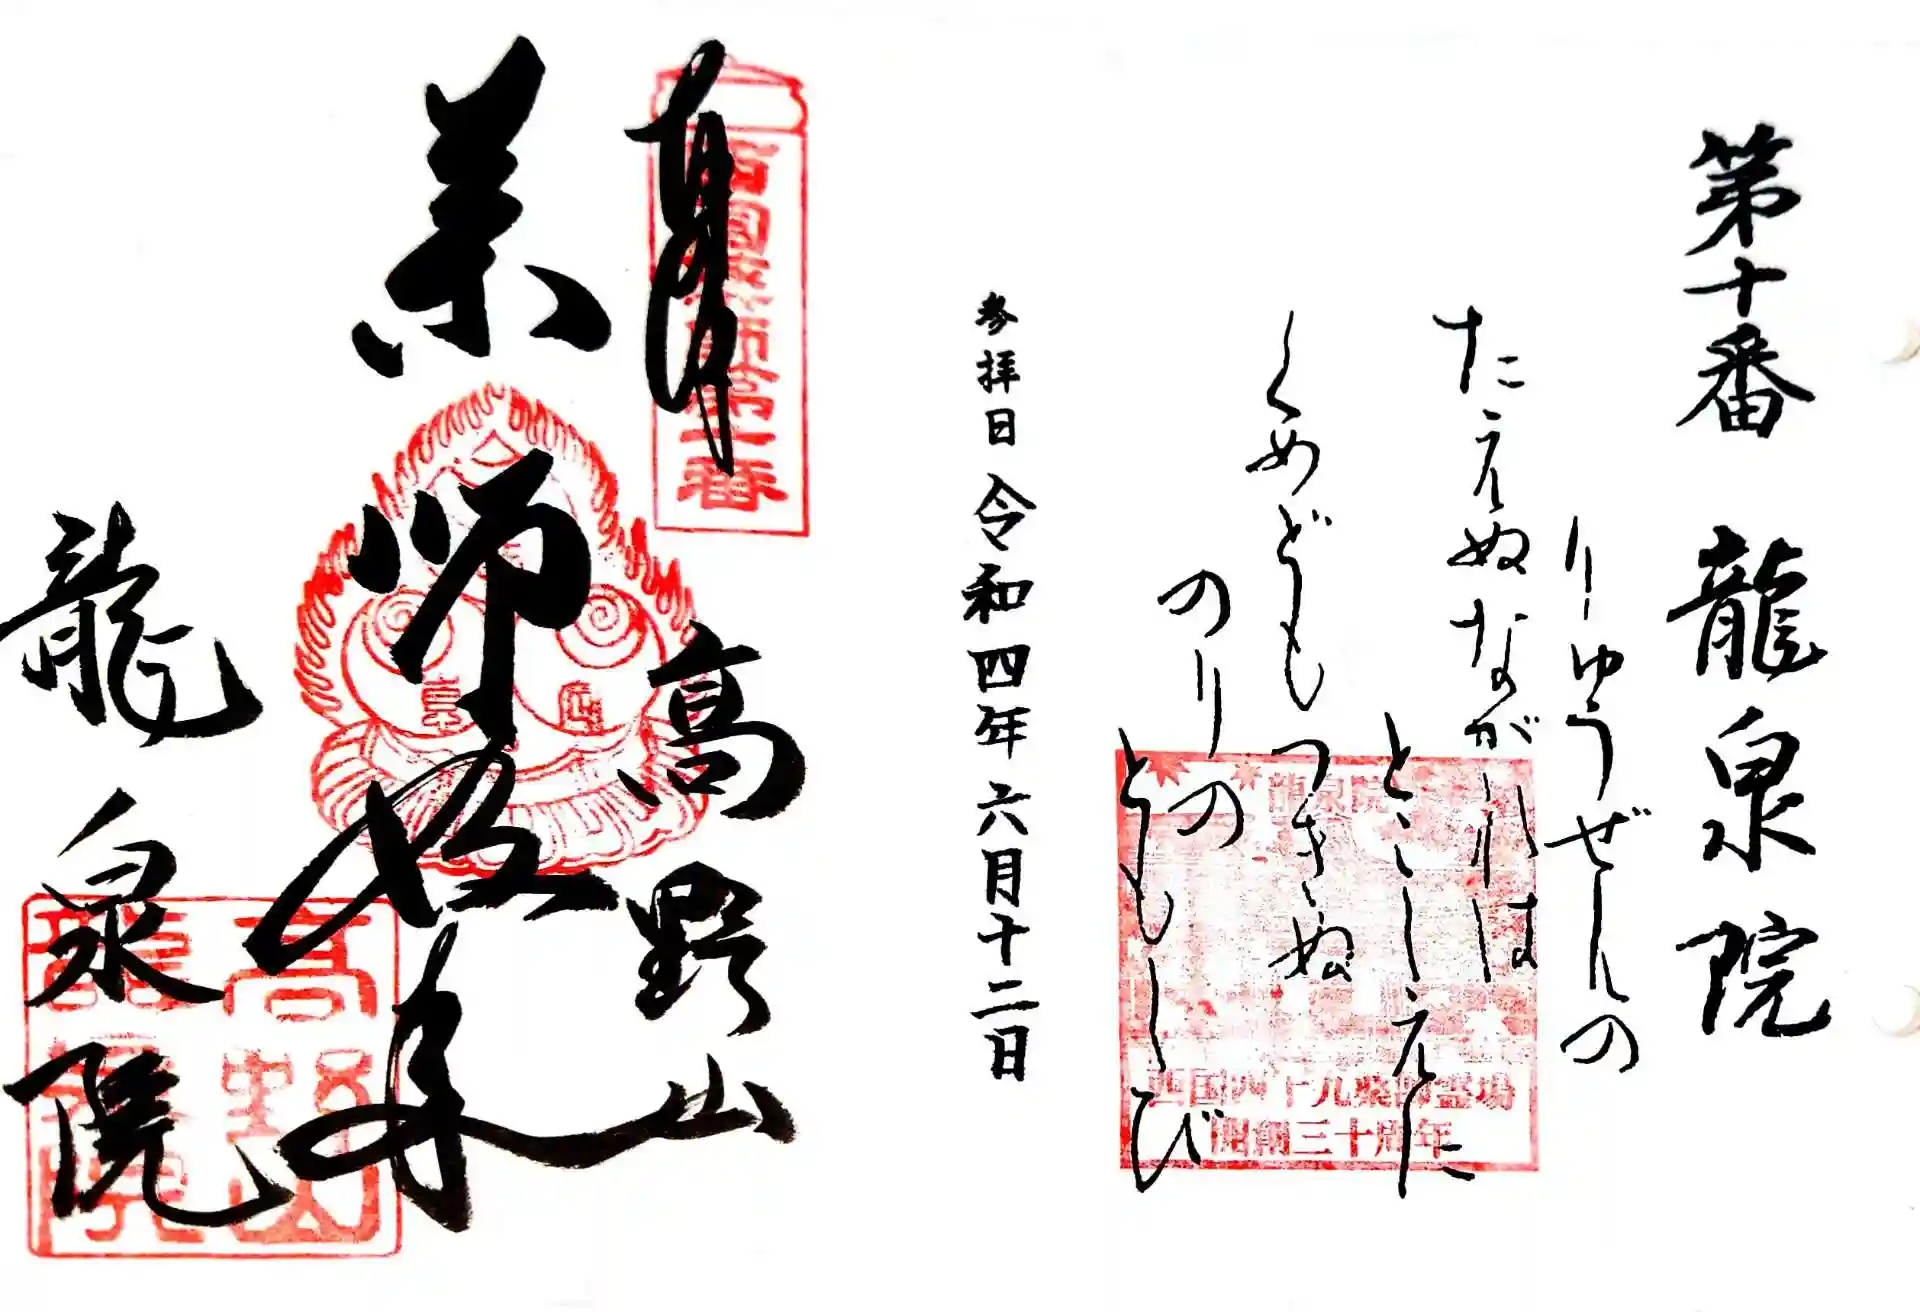 第十番 龍泉院
りゅうぜんの
たえぬながれは
とこしえに
くめどもつきぬ
のりの
ともしび
龍泉院
西国四十九薬師霊場
開創三十周年
参拝日 令和四年六月十二日
奉拝
西国薬師第十番
高野山
薬師如来
龍泉院
高野山
龍泉院